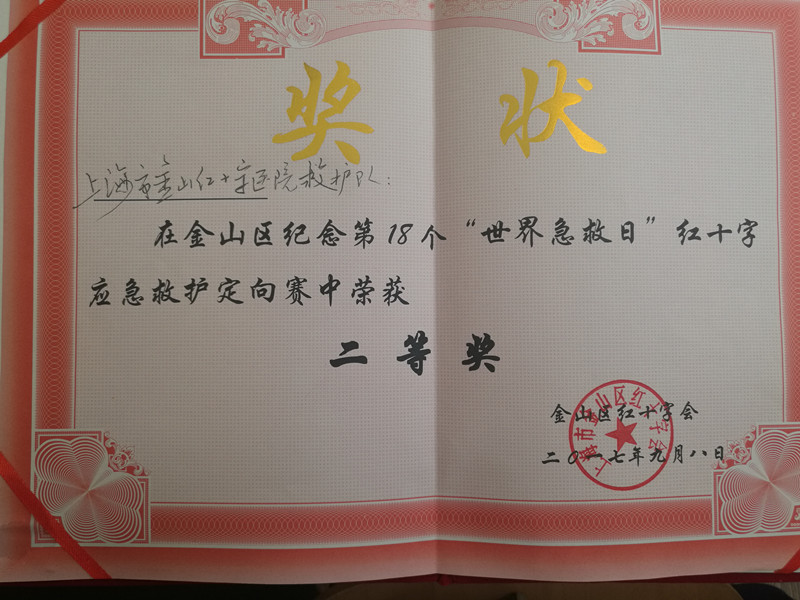 奖状
上海市金山红十字医院救护队:
在金山区纪念第18个“世界急救日”红十字
应急救护定向赛中荣获
二等奖
金山区红十字会
二〇一七年九月八日
上海市金山区红十字会